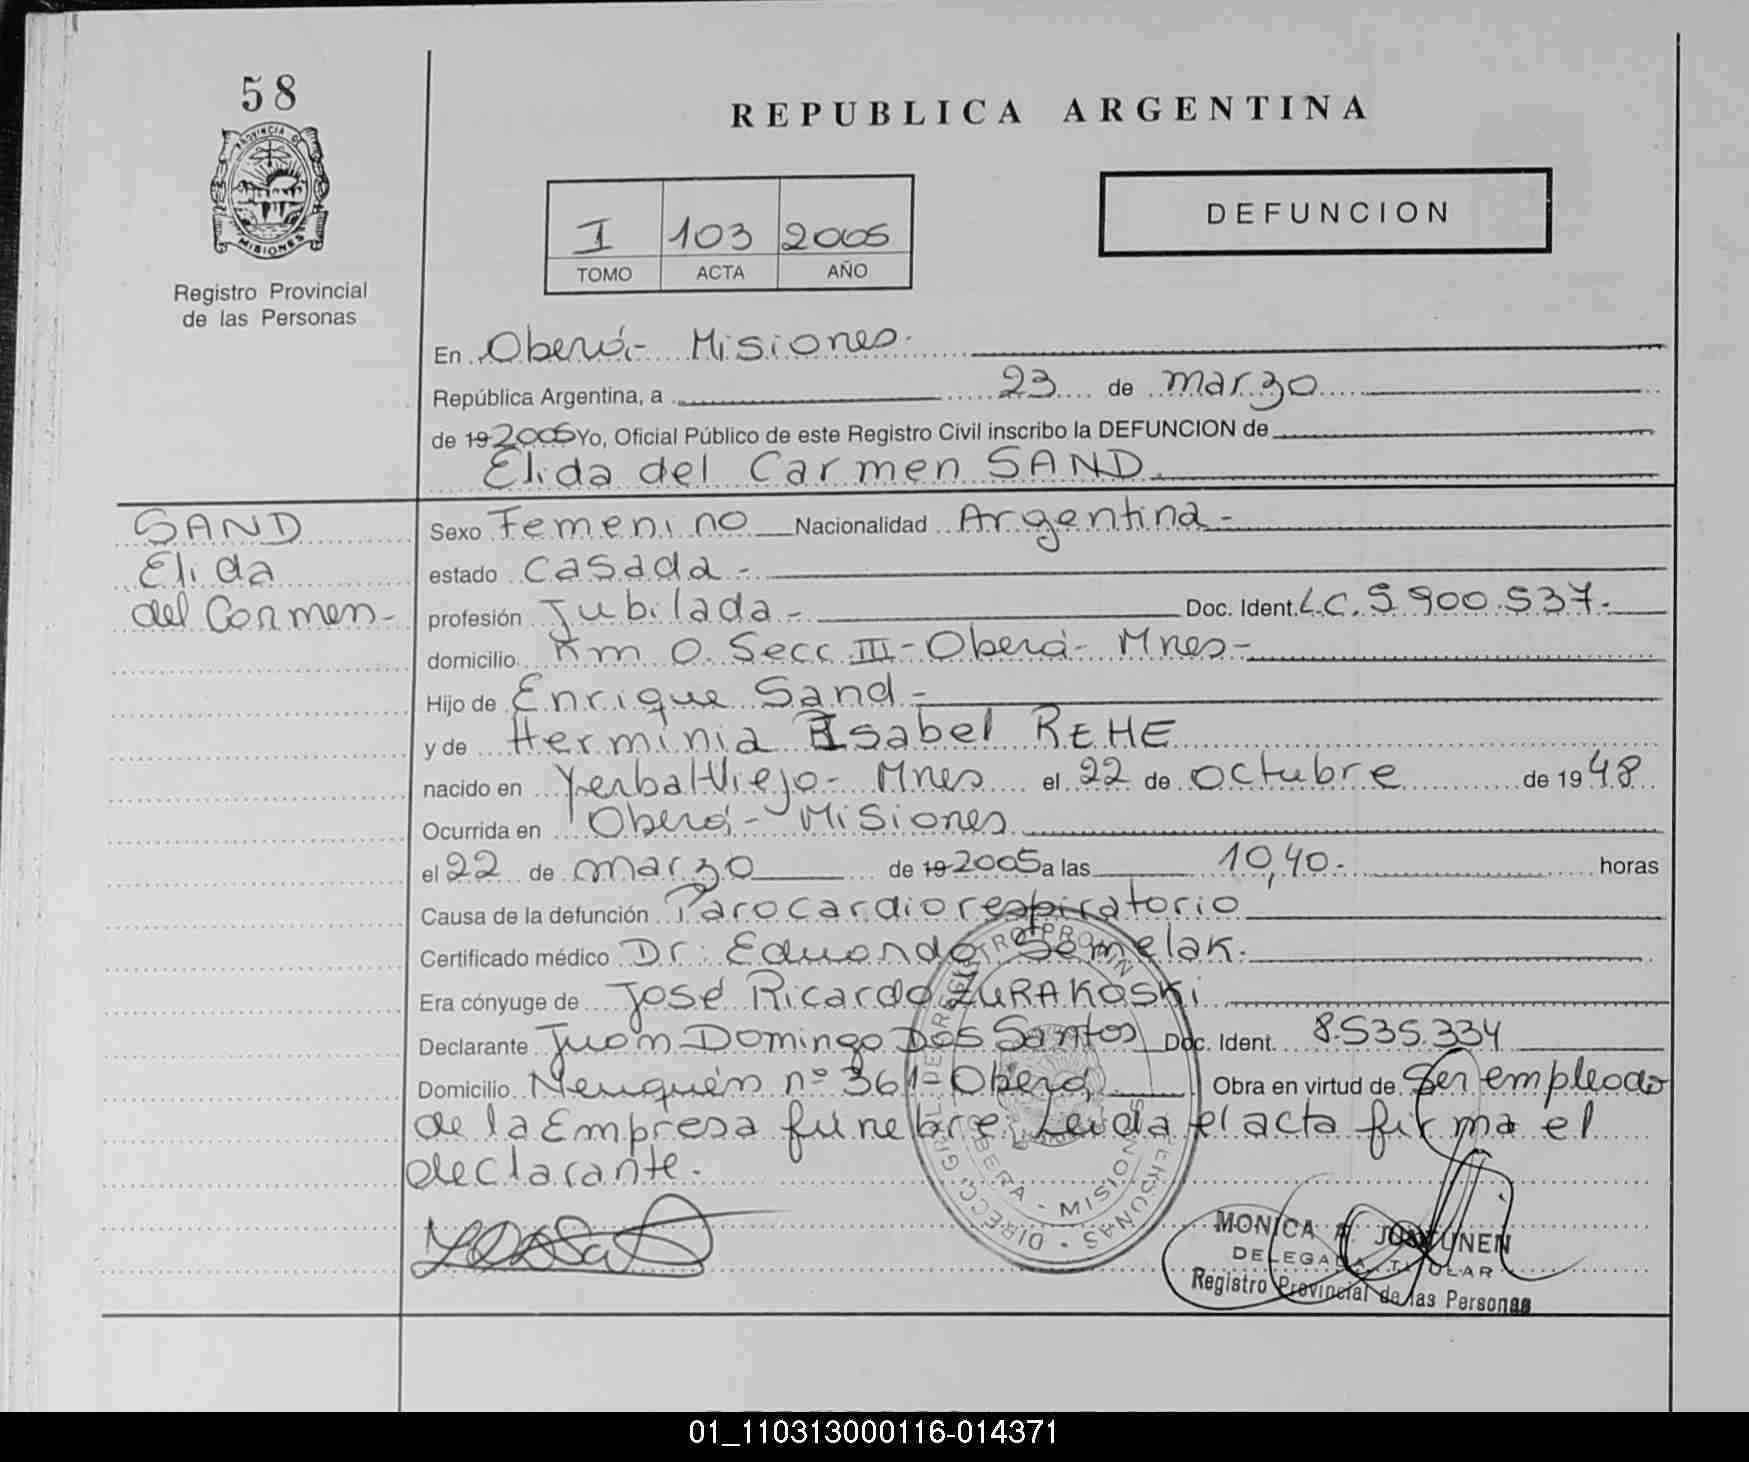 58
PROVINCIA DE
MISIONES
Registro Provincial
de las Personas
REPUBLICA ARGENTINA
I 103 2005
TOMO ACTA AÑO
DEFUNCION
En Oberá- Misiones.
República Argentina, a 23 de marzo
de 19 2005 Yo, Oficial Público de este Registro Civil inscribo la DEFUNCION de
Elida del Carmen SAND.
SAND
Elida
del Carmen-
Sexo Femenino Nacionalidad Argentina-
estado casada-
profesión Jubilada- Doc. Ident. L.C. 5.900.537.
domicilio Km 0 Secc III- Oberá- Mnes-
Hijo de Enrique Sand-
y de Herminia Isabel REHE
nacido en Yerbal Viejo- Mnes el 22 de octubre de 1948
Ocurrida en Oberá- Misiones
el 22 de marzo de 19 2005 a las 10,40.- horas
Causa de la defunción Parocardiorespiratorio
Certificado médico Dr. Eduardo Semelak.
Era cónyuge de José Ricardo ZURAKOSKi
Declarante Juan Domingo Dos Santos Doc. Ident. 8.535.334
Domicilio Neuquén nº 361- Oberá Obra en virtud de Ser empleado
de la Empresa fúnebre. Leida el acta firma el
declarante.-
DIRECC. GRAL. DE REGISTRO PROVIN PERSONAS
OBERA - MISIONES
MONICA
DELEGADA TITULAR
Registro Provincial de las Personas
01_110313000116-014371